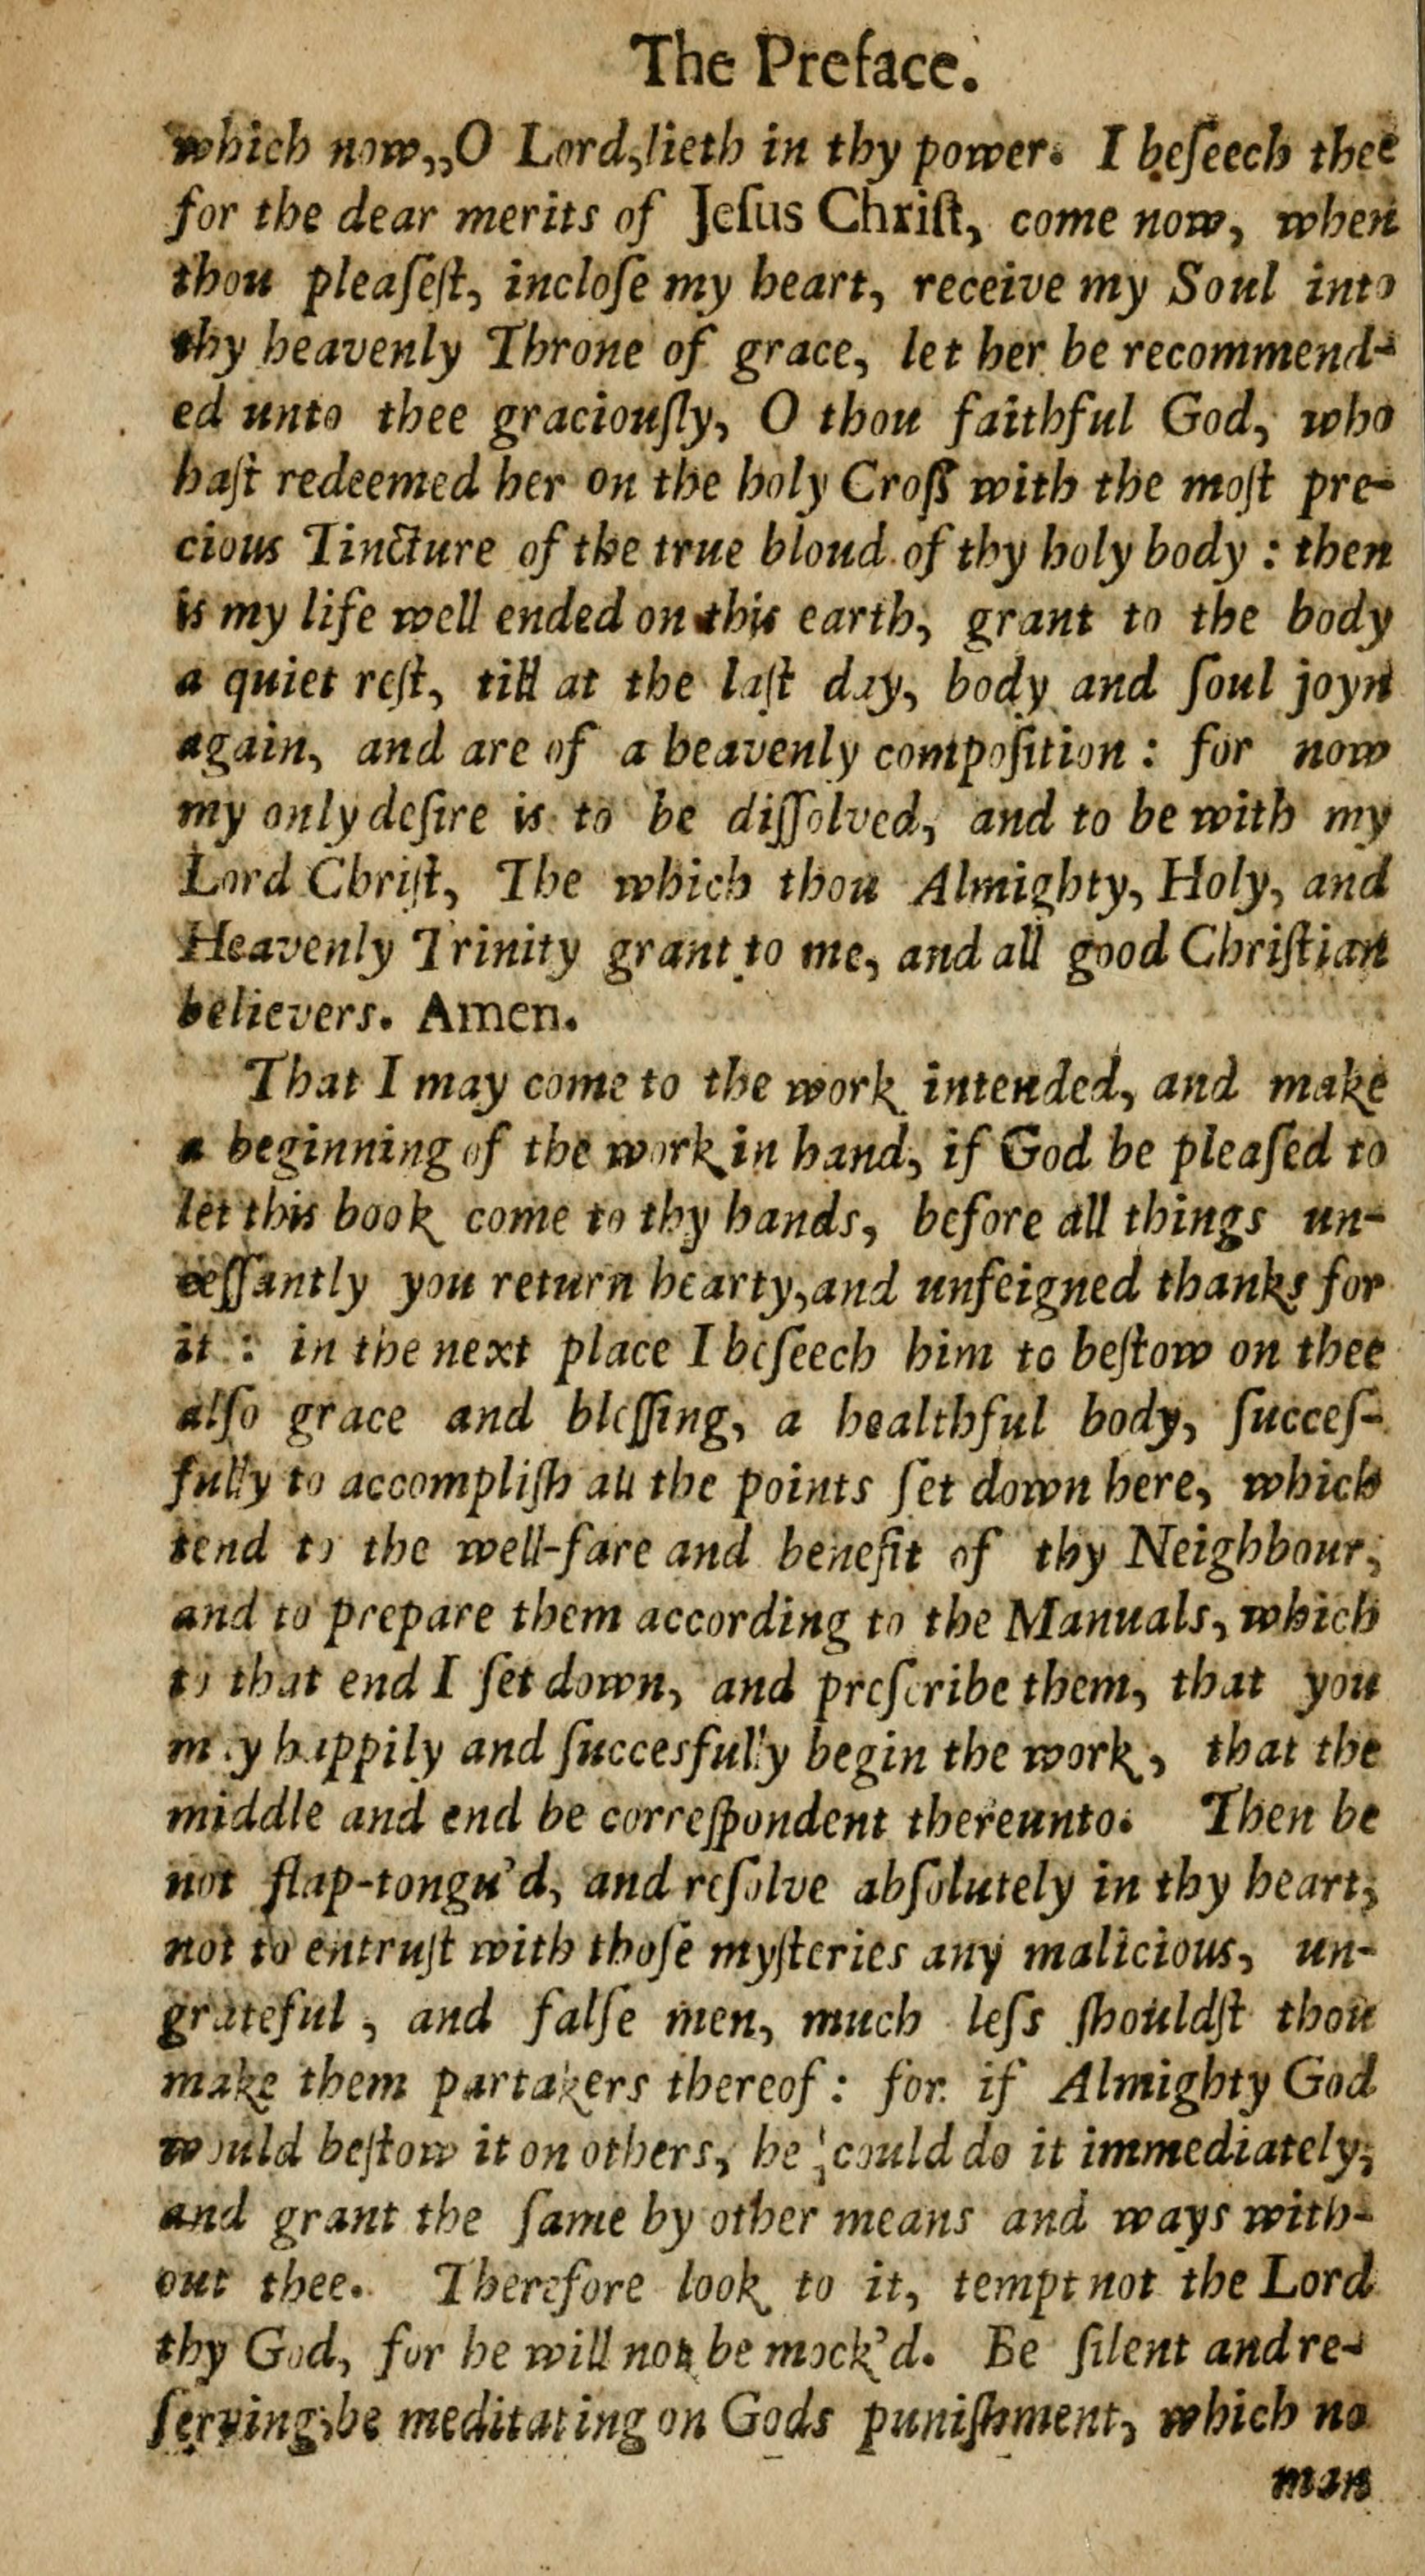 The Preface.
which now,,O Lord,lieth in thy power. I beſeech thee
for the dear merits of Jeſus Chriſt, come now, when
thou pleaſeſt, incloſe my heart, receive my Soul into
thy heavenly Throne of grace, let her be recommend-
ed unto thee graciouſly, O thou faithful God, who
haſt redeemed her on the holy Croſs with the moſt pre-
cious Tincture of the true bloud of thy holy body : then
is my life well ended on this earth, grant to the body
a quiet reſt, till at the laſt day, body and ſoul joyn
again, and are of a heavenly compoſition : for now
my only deſire is to be diſſolved, and to be with my
Lord Chriſt, The which thou Almighty, Holy, and
Heavenly Trinity grant to me, and all good Chriſtian
believers. Amen.
That I may come to the work intended, and make
a beginning of the work in hand, if God be pleaſed to
let this book come to thy hands, before all things un-
ceſſantly you return hearty,and unfeigned thanks for
it : in the next place I beſeech him to beſtow on thee
alſo grace and bleſſing, a healthful body, ſucceſ-
fully to accompliſh all the points ſet down here, which
tend to the well-fare and benefit of thy Neighbour,
and to prepare them according to the Manuals, which
to that end I ſet down, and preſcribe them, that you
may happily and ſuccesfully begin the work, that the
middle and end be correſpondent thereunto. Then be
not flap-tongu'd, and reſolve abſolutely in thy heart,
not to entruſt with thoſe myſteries any malicious, un-
grateful, and falſe men, much leſs ſhouldſt thou
make them partakers thereof : for if Almighty God
would beſtow it on others, he could do it immediately,
and grant the ſame by other means and ways with-
out thee. Therefore look to it, tempt not the Lord
thy God, for he will not be mock'd. Be ſilent and re-
ſerving,be meditating on Gods puniſhment, which no
man